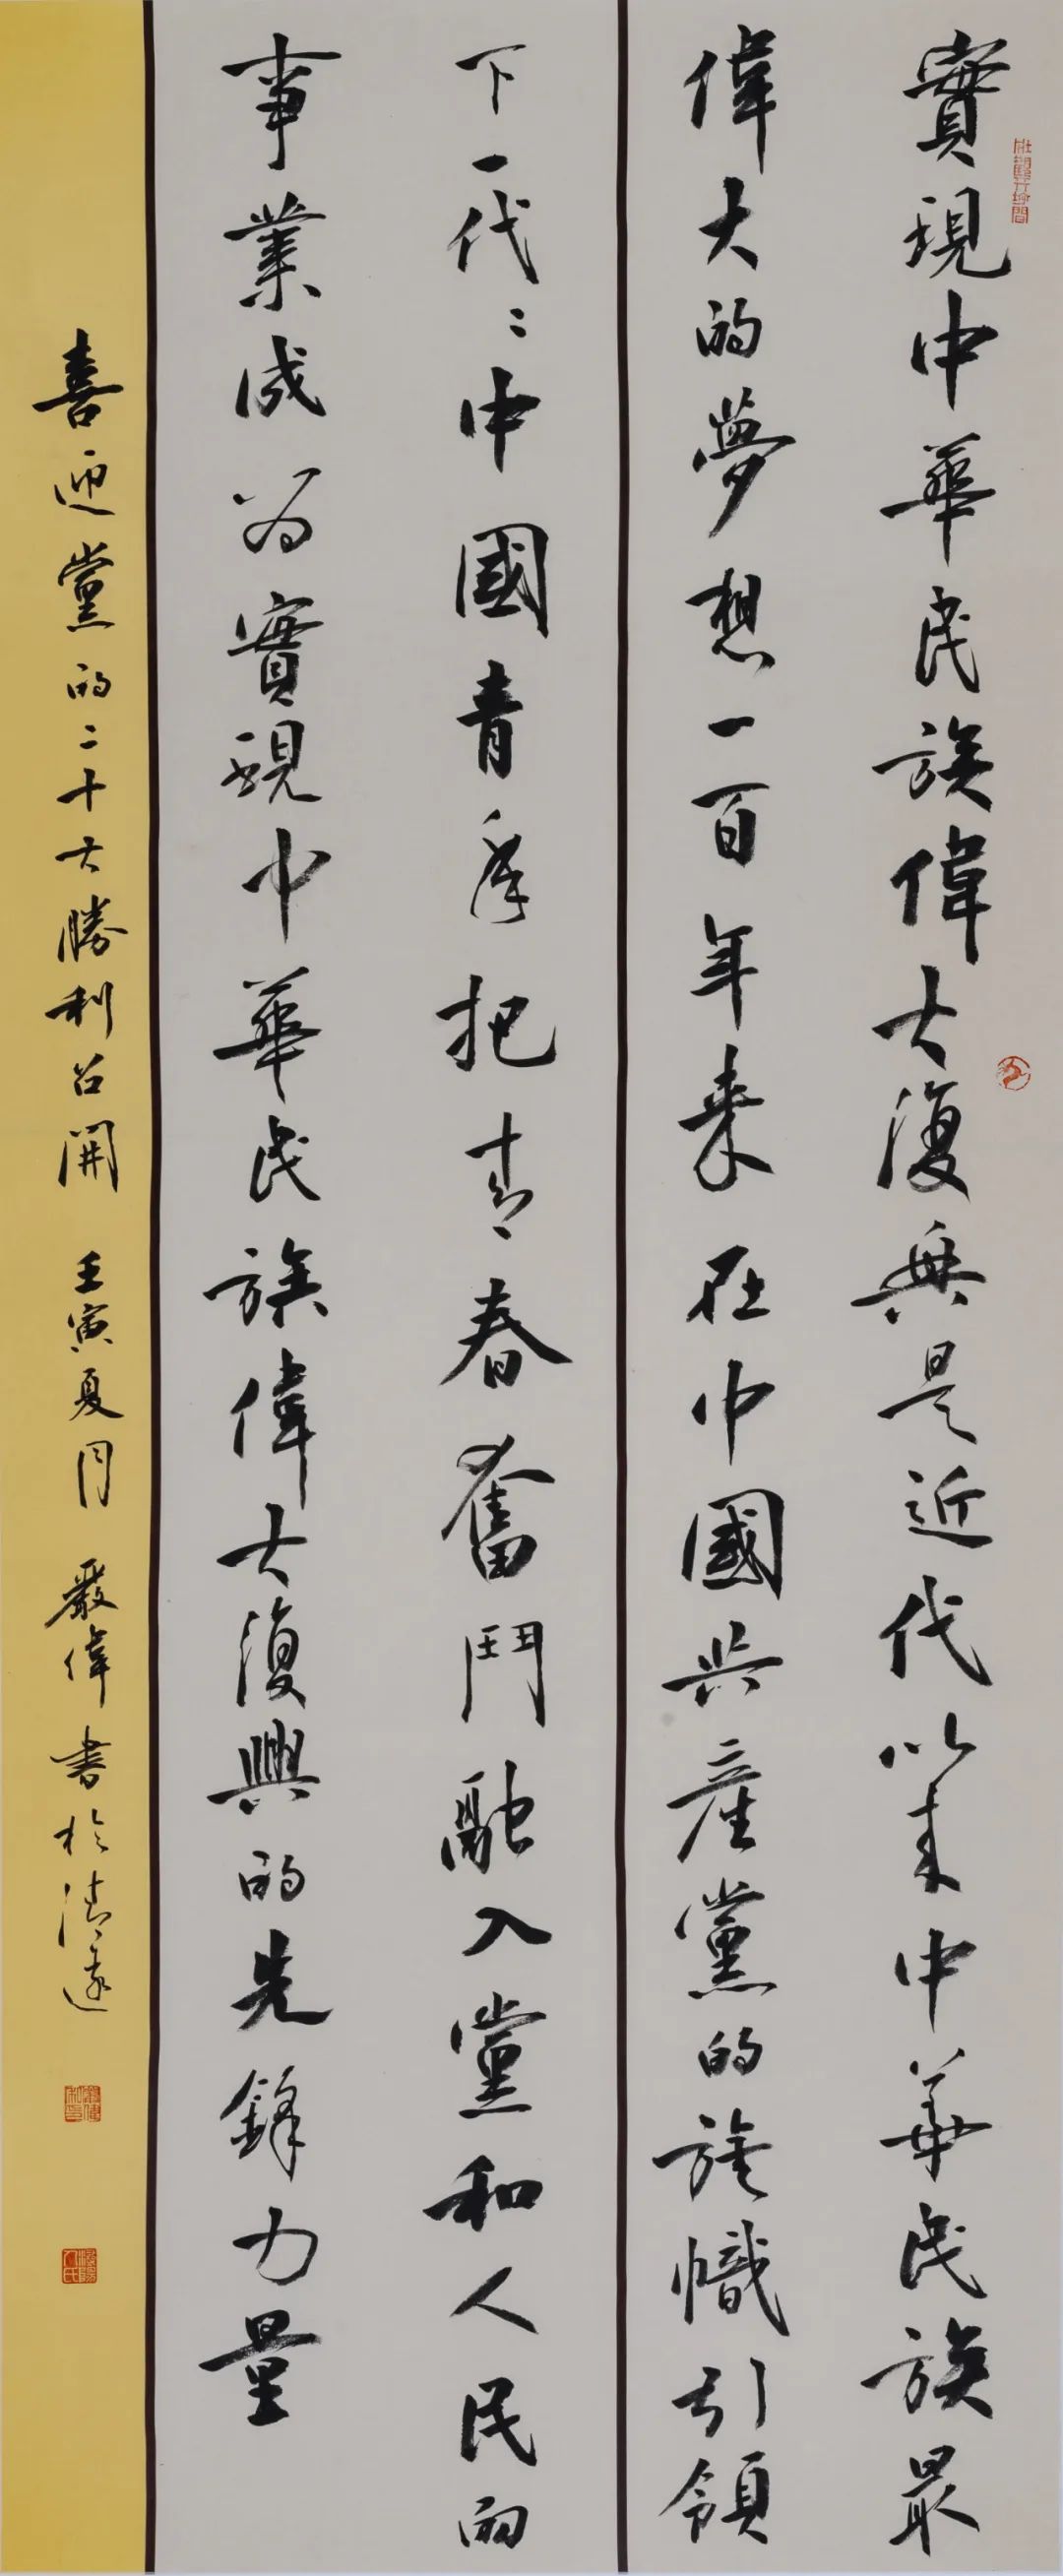 實現中華民族偉大復興是近代以来中華民族最
偉大的夢想一百年来在中國共産黨的旗幟引領
下一代〻中國青年把青春奮鬥融入黨和人民的
事業成为實現中華民族偉大復興的先鋒力量
喜迎黨的二十大勝利召開 壬寅夏月 嚴偉書於清遠